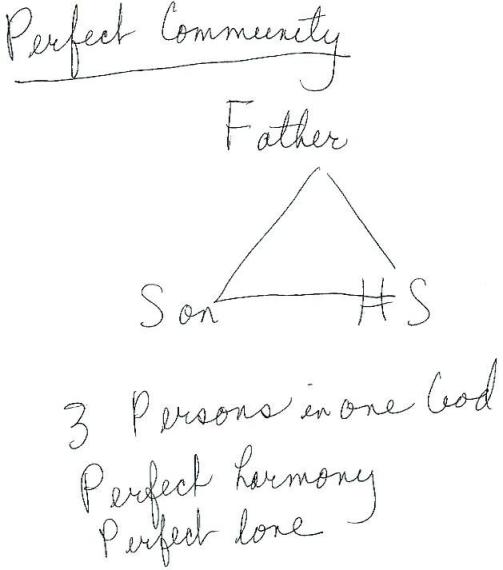 Perfect Community
Father
Son HS
3 Persons in one God
Perfect harmony
Perfect love